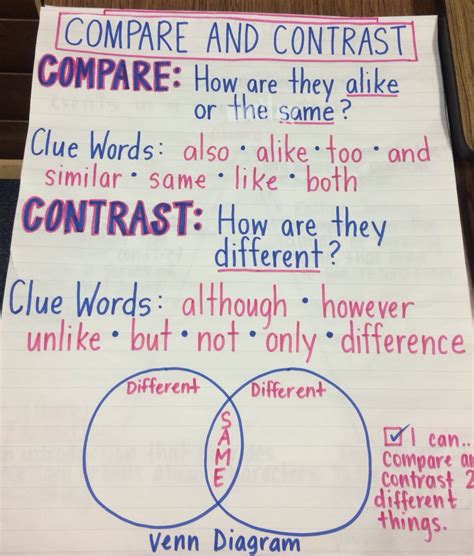 COMPARE AND CONTRAST
COMPARE: How are they alike
or the same?
Clue Words: also • alike • too • and
similar • same • like • both
CONTRAST: How are they
different?
Clue Words: although • however
unlike • but • not • only • difference
Different
Different
SAME
Venn Diagram
I can..
compare an
contrast 2
different
things.